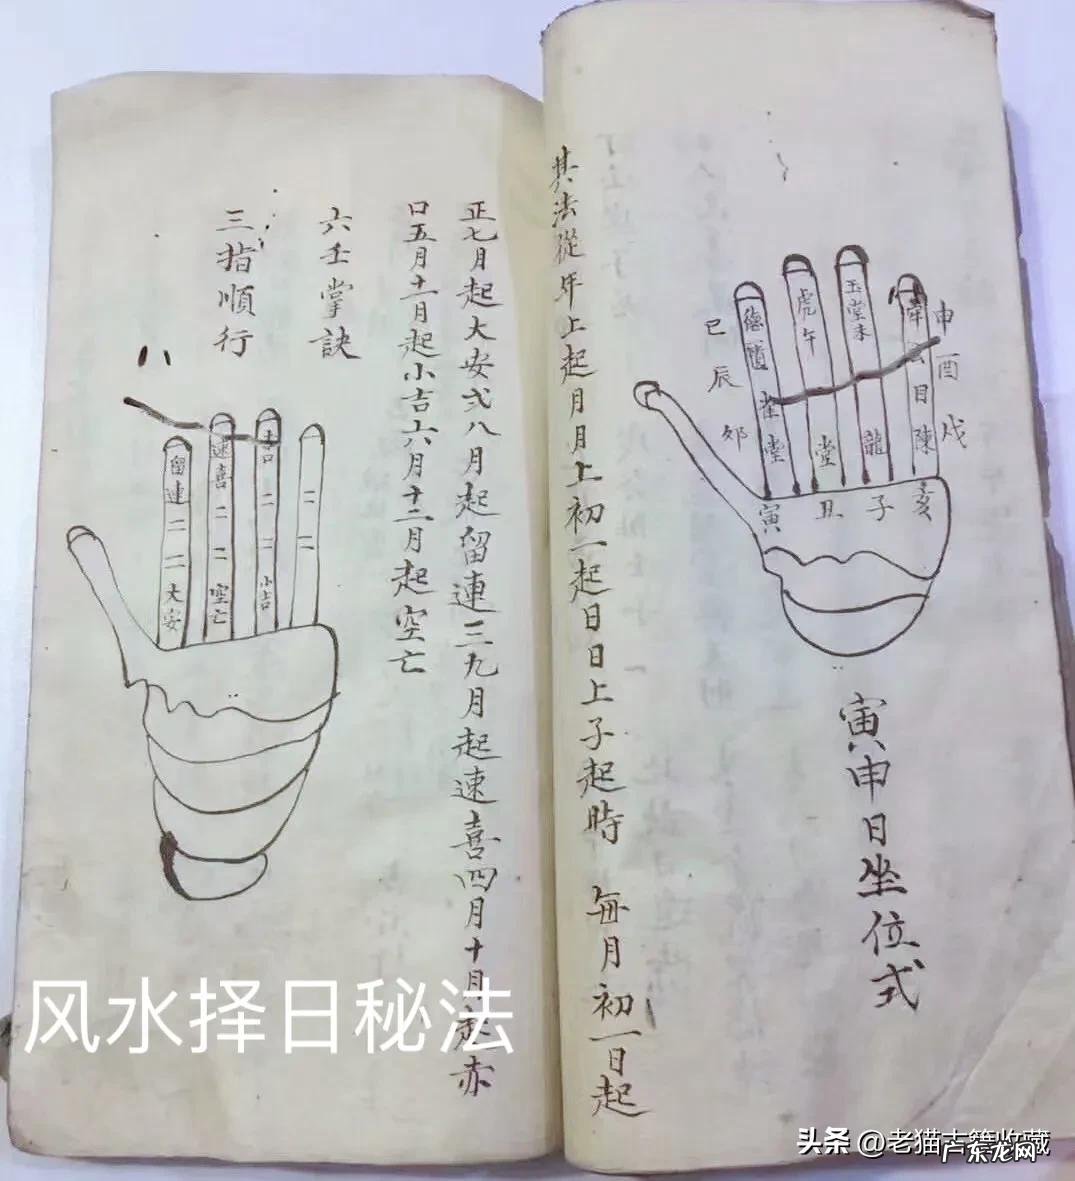 寅申日坐位式
巳
辰
卯
寅
德
堂
虎
午
堂
丑
玉堂未
龍
子
申
酉
戌
陳
亥
其法從年上起月月上初一起日日上子起時 每月初一日起
正七月起大安弍八月起留連三九月起速喜四月十月起赤
口五月十一月起小吉六月十二月起空亡
六壬掌訣
三指順行
留連
二
二
大安
速喜
二
二
空亡
赤口
二
二
小吉
二
二
风水择日秘法
头条 @老猫古籍收藏
广东龙网